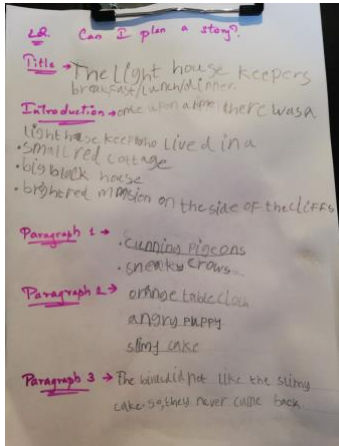 LQ. Can I plan a story?
Title → The Light house keepers
breakfast/Lunch/dinner.
Introduction → once upon a time, there was a
light house keep who lived in a
• small red cottage
• big black house
• bright red mansion on the side of the cliffs
Paragraph 1 →
• cunning pigeons
• sneaky crows
Paragraph 2 → orange table cloth
angry puppy
slimy cake
Paragraph 3 → The birds did not like the slimy
cake. so, they never came back.